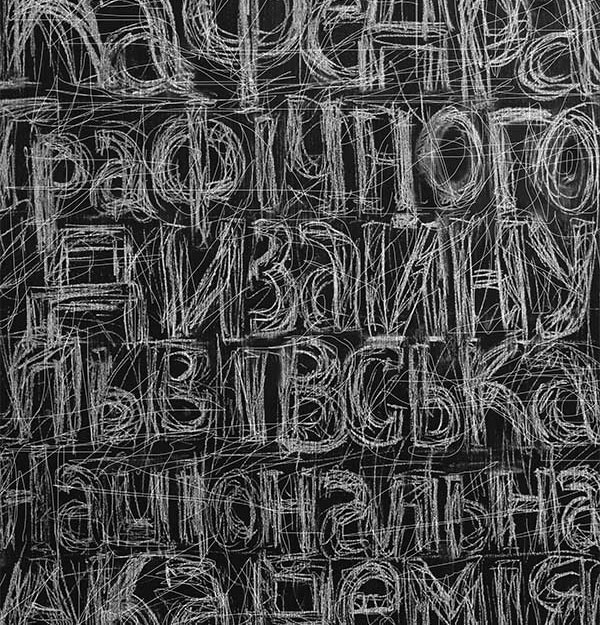 Кафедра
графічного
дизайну
Львівська
національна
академія